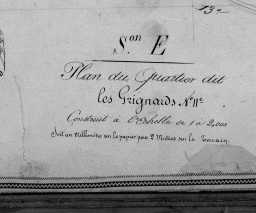 13e
S.on E
Plan du Quartier dit
les Grignards N° 11e
Construit à l'Echelle de 1 à 2,000
Soit un Millimètre sur le papier pour 2 Mètres sur le Terrain.